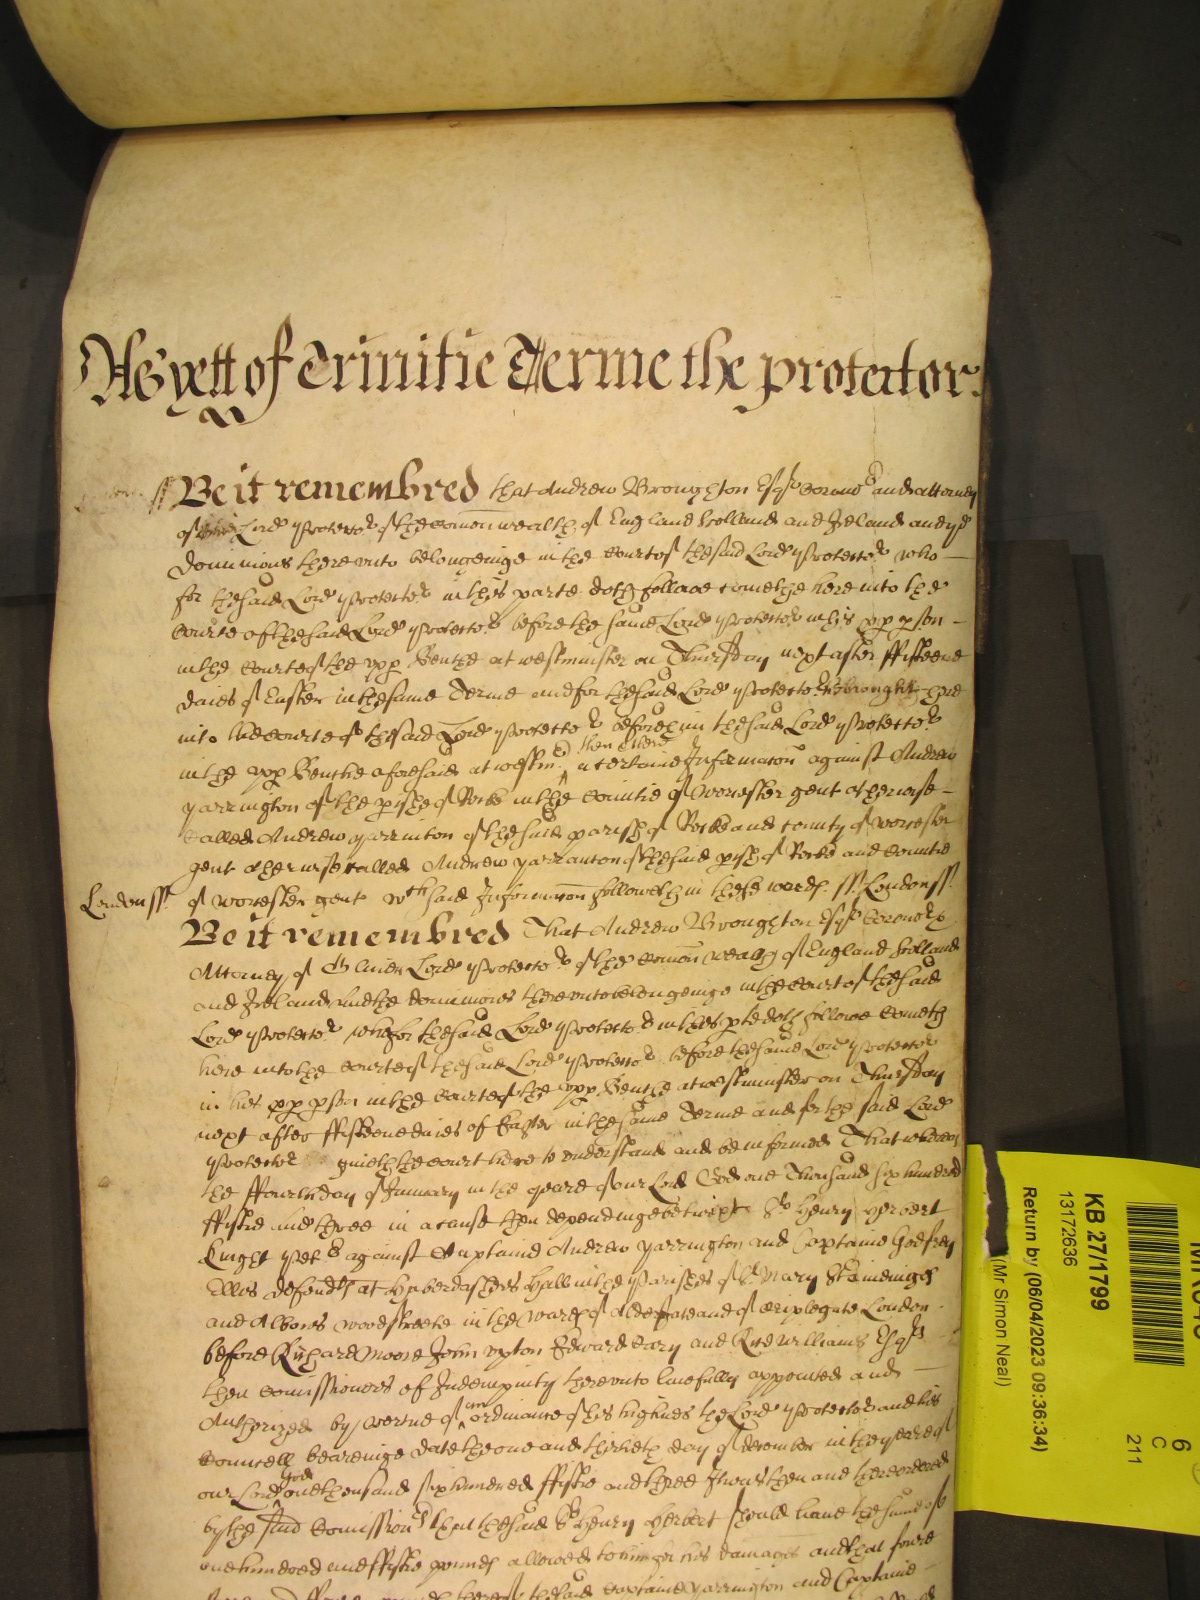 As yett of Trinitie Terme the protector.
Be it remembred that Andrew Broughton Esqr Coronr and Attorney
of Lord Protector of the Comon wealth of England Scotland and Ireland and ye
dominions there vnto belongeinge in the Court of the said Lord Protector who
for the said Lord Protector in this parte doth followe cometh here into the
Courte of the said Lord Protector before the same Lord Protector in his pp pson
in the Courte of the vpp Benche at westminster on Thursday next after ffifteene
daies of Easter in the same Terme and for the said Lord Protector brought here
into the Courte of the said Lord Protector before him the said Lord Protector
in the vpp Benche aforesaid at westmr then & there a certaine Informacon against Andrew
yarrington of the pishe of Rocke in the Countie of Worcester gent otherwise
called Andrew yarrinton of the said parish of Rocke and County of Worcester
gent otherwise called Andrew yarranton of the said pish of Rocke and Countie
London ss. of Worcester gent wch said Informacon followeth in these words ss. London ss.
Be it remembred That Andrew Broughton Esqr Coronr &
Attorney of Oliver Lord Protector of the Comon wealth of England Scotland
and Ireland and the dominions therevnto belongeinge in the Court of the said
Lord Protector who for the said Lord Protector in this pte doth followe Cometh
here into the Courte of the said Lord Protector before the same Lord Protector
in his pp pson in the Courte of the vpp Benche at westminster on Thursday
next after ffifteene daies of Easter in the same Terme and for the said Lord
Protector giueth the Court here to vnderstand and be informed That whereas
the ffourth day of January in the yeare of our Lord God one Thousand six hundred
ffiftie and three in a cause then dependinge betwixt Sr Henry Herbert
Knight against Captaine Andrew yarrington and Captaine Godfrey
Ellis defendts at Haberdashers Hall in the Parishes of St Mary Staineinge
and Albones Woodstreete in the wards of Aldersgate and of Criplegate London
before Richard Moore John vpton Edward Cary and Rice Williams Esqrs
then Comissioners of Indempnity therevnto lawfully appointed and
Authorized by vertue of an ordinance of his highnes the Lord Protector and his
Councell beareinge date the one and thirtieth day of december in the yeare of
our Lord god one thousand six hundred ffiftie and three It was then and there ordered
by the said Comissionrs that the said Sr Henry Herbert should haue the sume of
one hundred and ffiftie pounds allowed to him for his damages and that foure
the said Captaine yarrington and Captaine
KB 27/1799
13172636
Return by (06/04/2023 09:36:34)
(Mr Simon Neal)
6
C
211